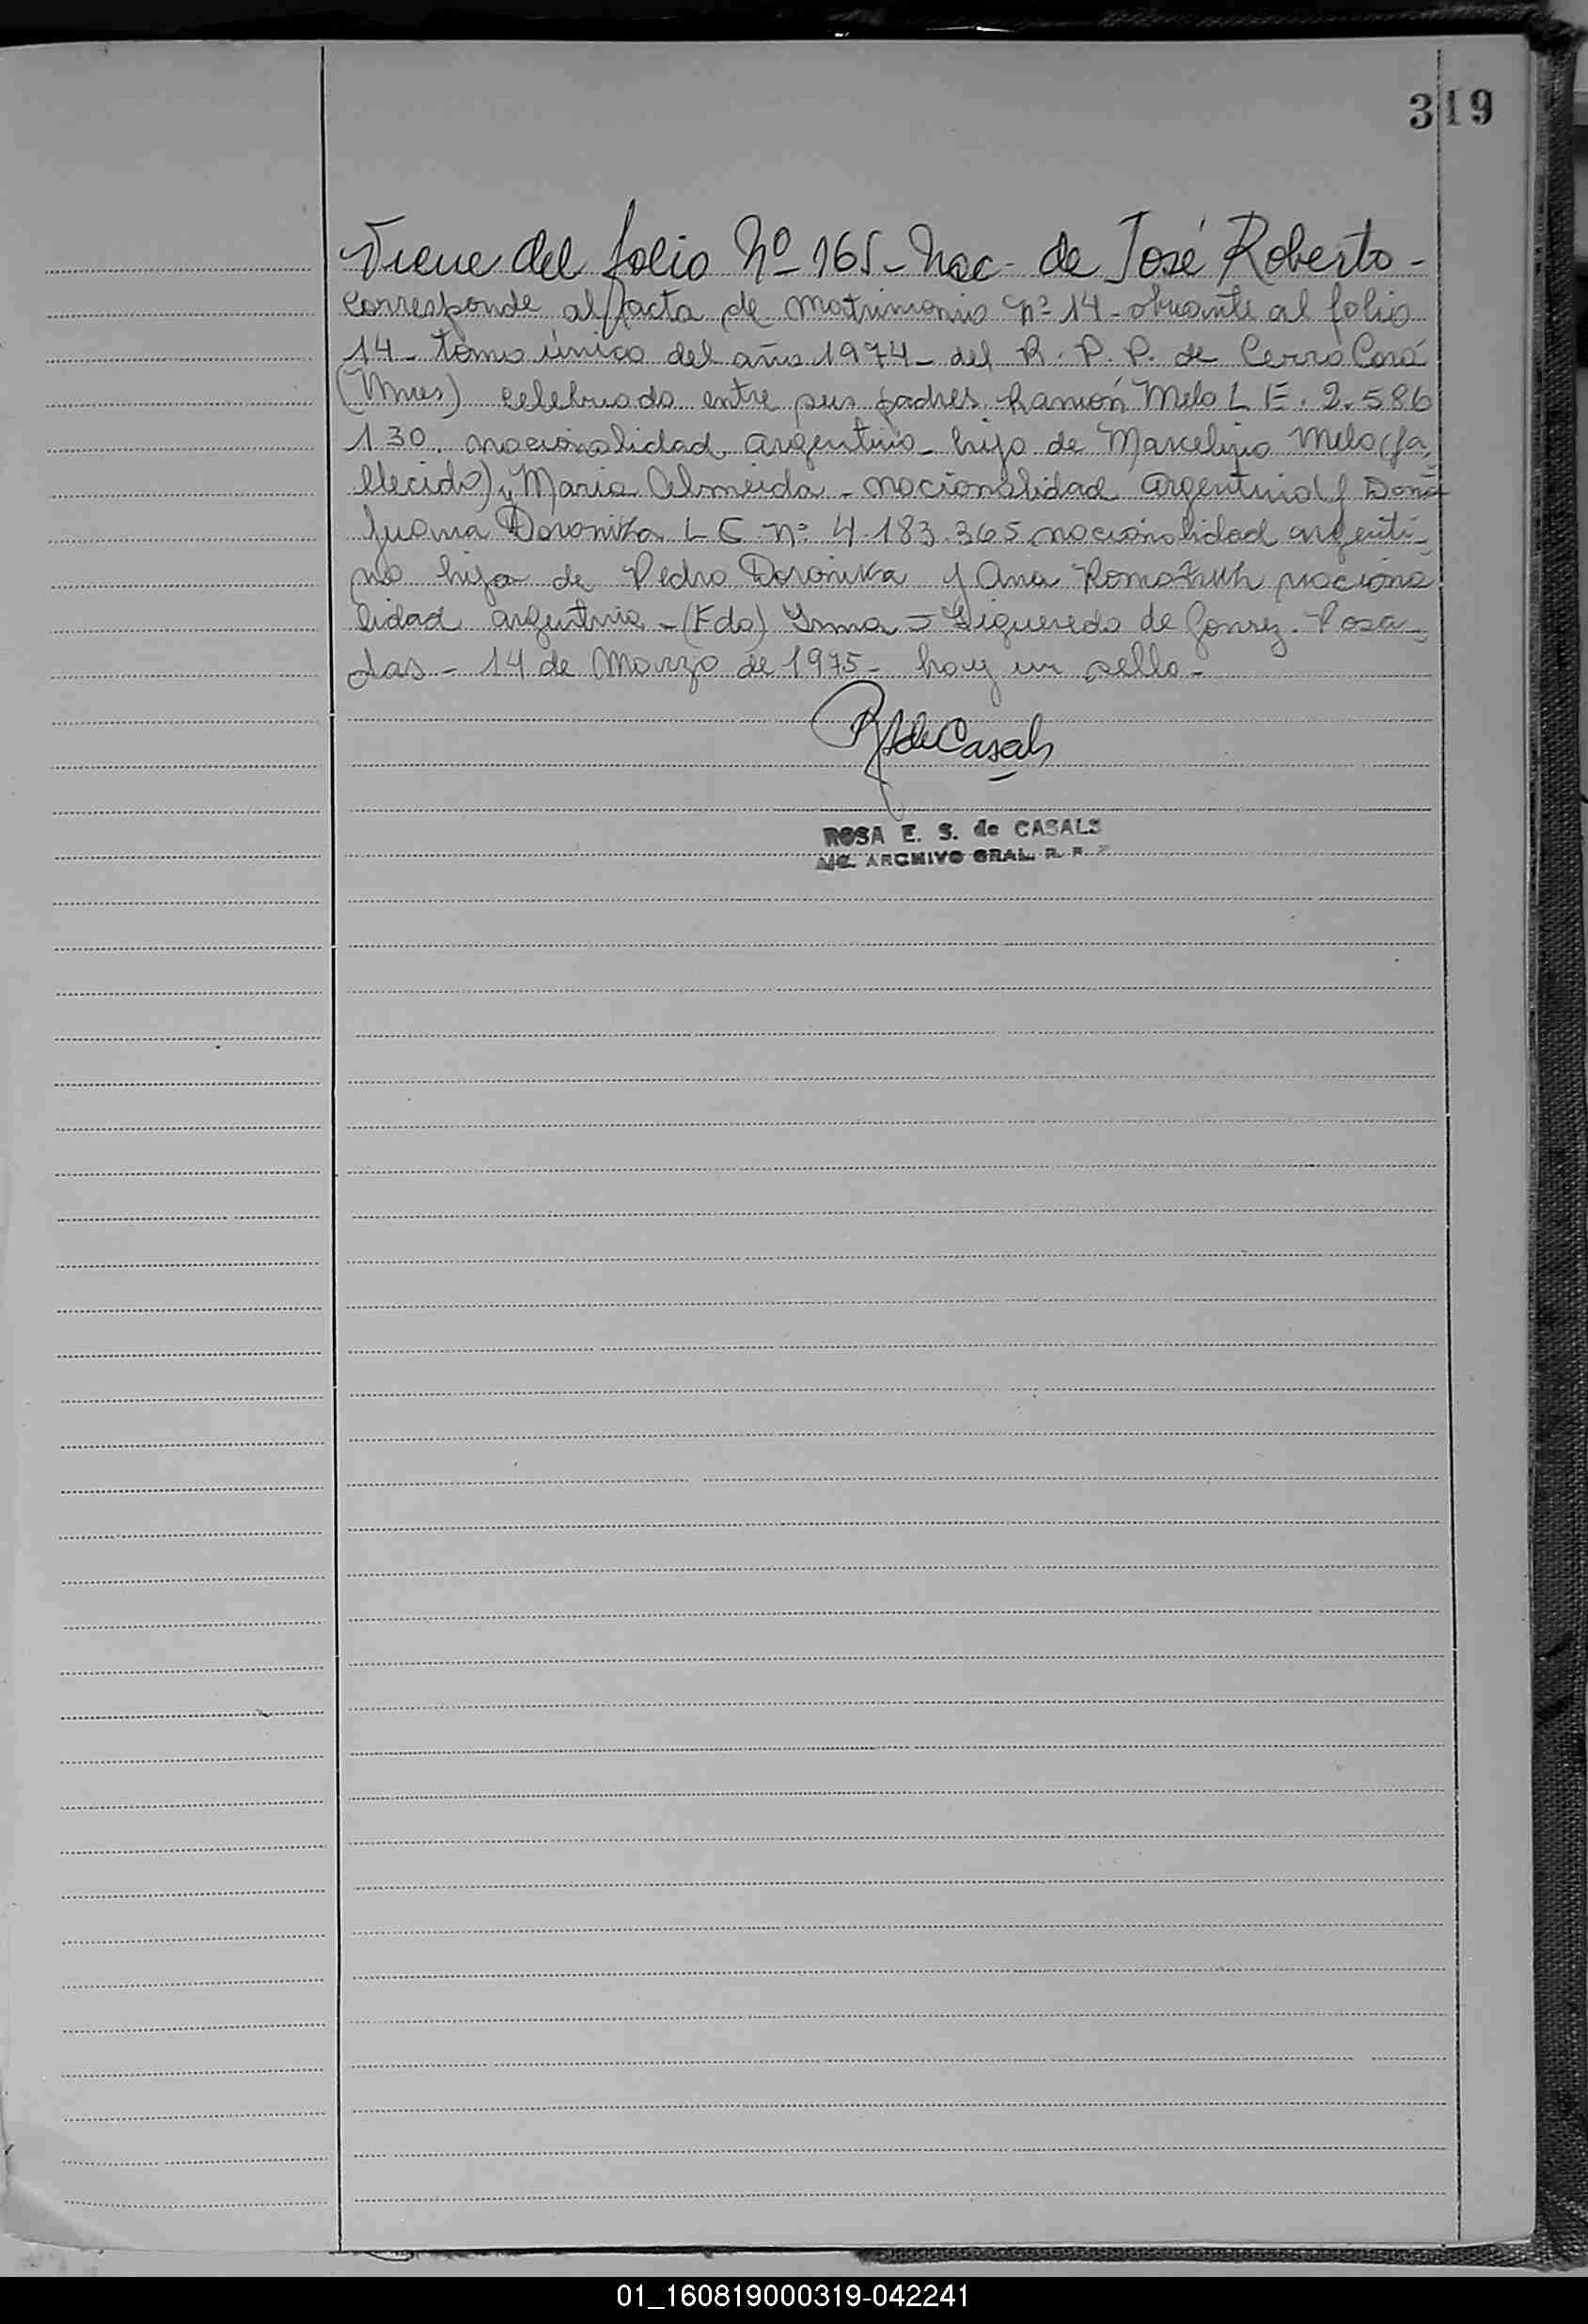 319
Viene del folio Nº 165 - Nac - de José Roberto -
Corresponde al acta de matrimonio nº 14 - obrante al folio
14 - tomo único del año 1974 - del R. P. P. de Cerro Corá
(Mnes) celebrado entre sus padres Ramón Melo L E. 2.586
130. nacionalidad argentino - hijo de Marcelino Melo (fa
llecido) y Maria Almeida - nacionalidad argentina y Doña
Juana Doronika L C nº 4.183.365 nacionalidad argenti-
na hija de Pedro Doronika y Ana naciona
lidad argentina - (Fdo) Irma Figueredo de Posa-
das - 14 de Marzo de 1975 - hay un sello -
RSdeCasals
ROSA E. S. de CASALS
ARCHIVO GRAL. R. P.
01_160819000319-042241